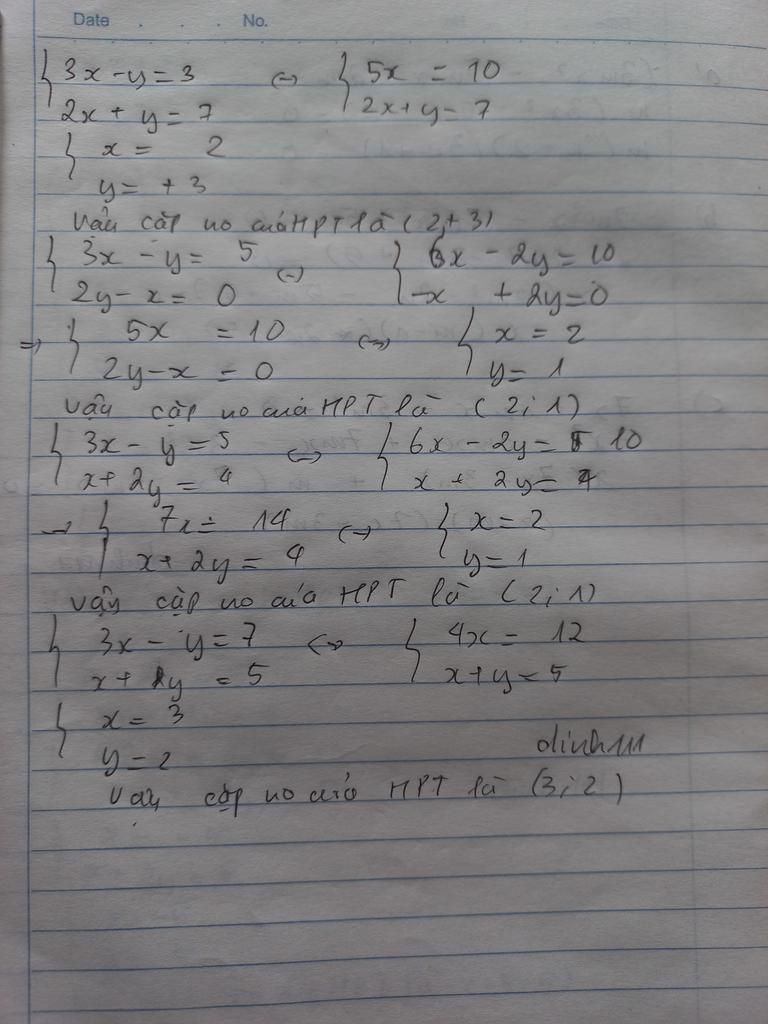 Date . . . No.
{ 3x - y = 3 <-> { 5x = 10
2x + y = 7 2x + y = 7
{ x = 2
y = + 3
Vậy cặp no của HPT là (2;+3)
{ 3x - y = 5 <-> { 6x - 2y = 10
2y - x = 0 -x + 2y = 0
=> { 5x = 10 <=> { x = 2
2y - x = 0 y = 1
Vậy cặp no của HPT là (2;1)
{ 3x - y = 5 <=> { 6x - 2y = 10
x + 2y = 4 x + 2y = 4
-> { 7x = 14 <-> { x = 2
x + 2y = 4 y = 1
Vậy cặp no của HPT là (2;1)
{ 3x - y = 7 <-> { 4x = 12
x + y = 5 x + y = 5
{ x = 3
y = 2 dinh111
Vậy cặp no của HPT là (3;2)